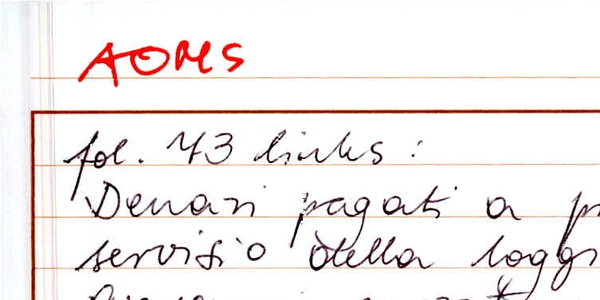 AOMS
fol. 43 links:
Denari pagati a
servisio della